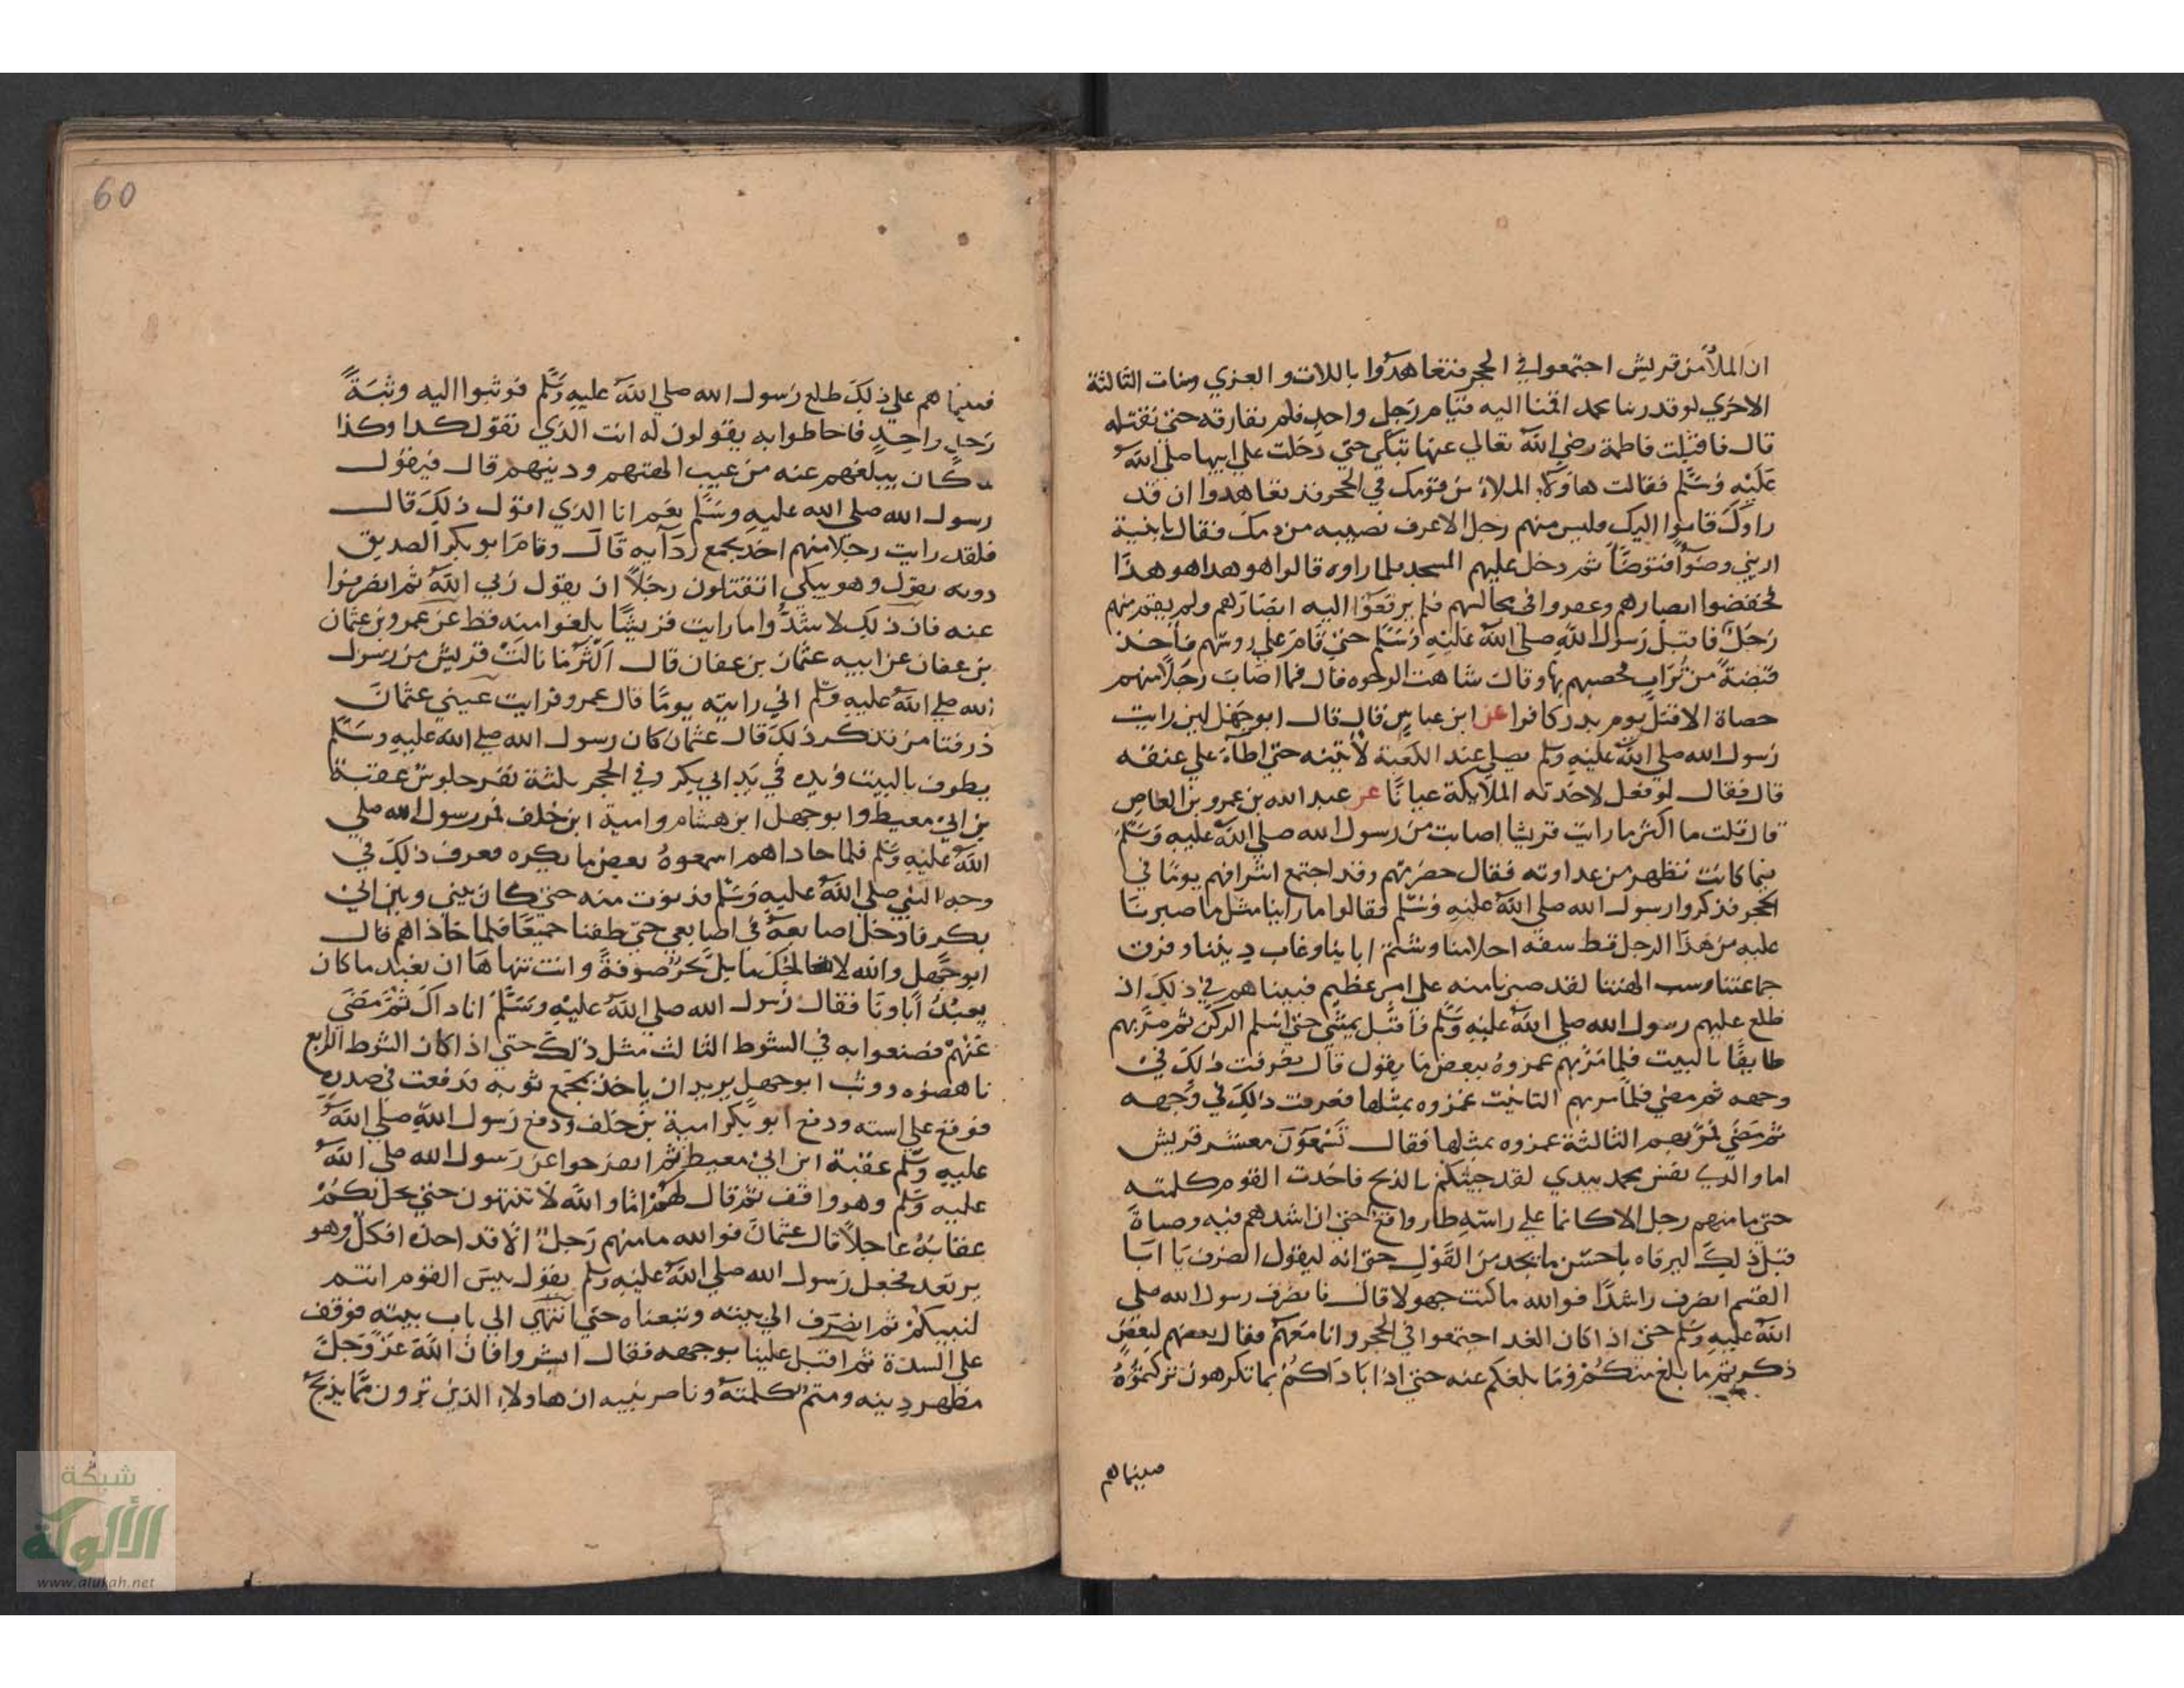 ان الملأ من قريش اجتمعوا في الحجر فتعاهدوا باللات والعزي ومنات الثالثة
الاخري لو قد راينا محمد اقمنا اليه قيام رجل واحد فلم نفارقه حتي نقتله
قال فاقبلت فاطمة رضي الله تعالي عنها تبكي حتي دخلت علي ابيها صلي الله
عليه وسلم فقالت هاولاء الملاء من قومك في الحجر قد تعاهدوا ان قد
راوك قاموا اليك فليس منهم رجل الا عرف نصيبه من دمك فقال يابنية
اريني وضوأ فتوضأ ثم دخل عليهم المسجد فلما راوه قالوا هو هدا هو هذا
فخفضوا ابصارهم وعقروا في مجالسهم فلم يرفعوا اليه ابصارهم ولم يقم منهم
رجل فاقبل رسول الله صلي الله عليه وسلم حتي قام علي روسهم فاخذ
قبضة من تراب فحصبهم بها وقال شاهت الوجوه قال فما اصاب رجلا منهم
حصاة الا قتل يوم بدر كافرا عن ابن عباس قال قال ابو جهل لين رايت
رسول الله صلي الله عليه وسلم يصلي عند الكعبة لأتينه حتي اطأ علي عنقه
قال فقال لو فعل لاخذته الملايكة عيانا عن عبد الله بن عمرو بن العاص
قال قلت ما اكثر ما رايت قريشا اصابت من رسول الله صلي الله عليه وسلم
فيما كانت تظهر من عداوته فقال حضرتهم وقد اجتمع اشرافهم يوما في
الحجر فذكروا رسول الله صلي الله عليه وسلم فقالوا ما راينا مثل ما صبرنا
عليه من هذا الرجل قط سفه احلامنا وشتم اباينا وعاب ديننا وفرق
جماعتنا وسب الهتنا لقد صبرنا منه علي امر عظيم فبينا هم في ذلك اذ
طلع عليهم رسول الله صلي الله عليه وسلم فاقبل يمشي حتي استلم الركن ثم مر بهم
طايفا بالبيت فلما مر بهم غمزوه ببعض ما يقول قال فعرفت ذلك في
وجهه ثم مضي فلما مر بهم الثانية غمزوه بمثلها فعرفت ذلك في وجهه
ثم مضي فمر بهم الثالثة غمزوه بمثلها فقال تسمعون معشر قريش
اما والذي نفس محمد بيدي لقد جيتكم بالذبح فاخذت القوم كلمته
حتي ما منهم رجل الا كانما علي راسه طار واقع حتي ان اشدهم فيه وصاة
قبل ذلك ليرفاه باحسن ما يجد من القول حتي انه ليقول انصرف يا ابا
القسم انصرف راشدا فوالله ما كنت جهولا قال فانصرف رسول الله صلي
الله عليه وسلم حتي اذا كان الغد اجتمعوا في الحجر وانا معهم فقال بعضهم لبعض
ذكرتم ما بلغ منكم وما بلغكم عنه حتي اذا باداكم بما تكرهون تركتموه
فبينما هم
60
فبينما هم علي ذلك طلع رسول الله صلي الله عليه وسلم فوثبوا اليه وثبة
رجل واحد فاحاطوا به يقولون له انت الذي تقول كدا وكذا
كان يبلغهم عنه من عيب الهتهم ودينهم قال فيقول
رسول الله صلي الله عليه وسلم نعم انا الذي اقول ذلك قال
فلقد رايت رجلا منهم اخذ بجمع ردآيه قال وقام ابو بكر الصديق
دونه يقول وهو يبكي اتقتلون رجلا ان يقول ربي الله ثم انصرفوا
عنه فان ذلك لاشد وما رايت قريشا بلغوا منه قط عن عمرو بن عثمان
بن عفان عن ابيه عثمان بن عفان قال اكثر ما نالت قريش من رسول
الله صلي الله عليه وسلم اني رايته يوما قال عمرو فرايت عيني عثمان
ذرفتا من تذكر ذلك قال عثمان كان رسول الله صلي الله عليه وسلم
يطوف بالبيت ويده في يد ابي بكر وفي الحجر ثلثة نفر جلوس عقبة
بن ابي معيط وابو جهل ابن هشام وامية ابن خلف فمر رسول الله صلي
الله عليه وسلم فلما حاداهم اسمعوه بعض ما يكره فعرف ذلك في
وجه النبي صلي الله عليه وسلم فدنوت منه حتي كان بيني وبين ابي
بكر فادخل اصابعه في اصابعي حتي طفنا جميعا فلما حاذاهم قال
ابو جهل والله لا نصالحك ما بل بحر صوفة وانت تنهاها ان نعبد ما كان
يعبد اباونا فقال رسول الله صلي الله عليه وسلم انا ذاك ثم مضي
عنهم فصنعوا به في الشوط الثالث مثل ذلك حتي اذا كان الشوط الرابع
ناهضوه ووثب ابو جهل يريد ان ياخذ بجمع ثوبه فدفعت في صدره
فوقع علي استه ودفع ابو بكر امية بن خلف ودفع رسول الله صلي الله
عليه وسلم عقبة ابن ابي معيط ثم انفرجوا عن رسول الله صلي الله
عليه وسلم وهو واقف ثم قال لهم اما والله لا تنتهون حتي يحل بكم
عقابه عاجلا قال عثمان فوالله ما منهم رجل الا قد اخذه افكل وهو
يرتعد فجعل رسول الله صلي الله عليه وسلم يقول بيس القوم انتم
لنبيكم ثم انصرف الي بيته وتبعناه حتي انتهي الي باب بيته فوقف
علي السدة ثم اقبل علينا بوجهه فقال ابشروا فان الله عز وجل
مظهر دينه ومتم كلمته وناصر نبيه ان هاولاء الذين ترون مما يذبح
شبكة
الألوكة
www.alukah.net